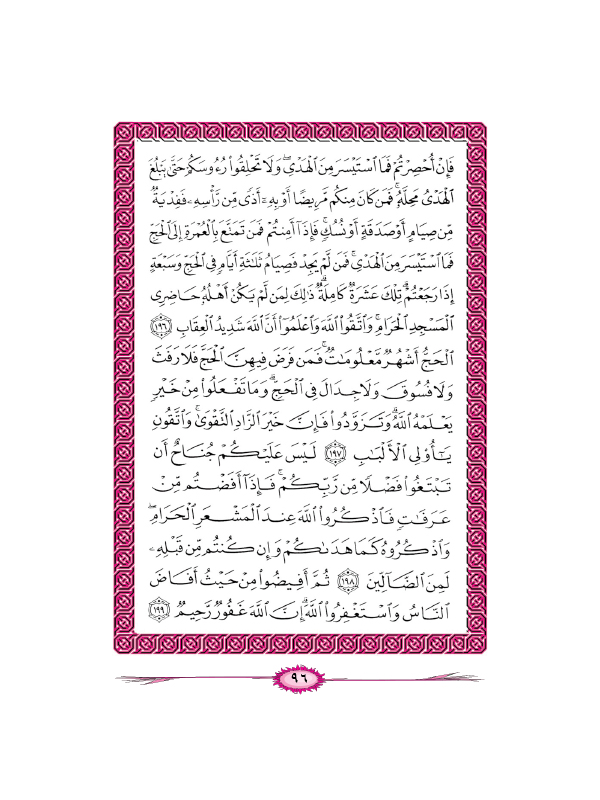 فَإِنْ أُحْصِرْتُمْ فَمَا ٱسْتَيْسَرَ مِنَ ٱلْهَدْىِ ۖ وَلَا تَحْلِقُوا۟ رُءُوسَكُمْ حَتَّىٰ يَبْلُغَ
ٱلْهَدْىُ مَحِلَّهُۥ ۚ فَمَن كَانَ مِنكُم مَّرِيضًا أَوْ بِهِۦٓ أَذًى مِّن رَّأْسِهِۦ فَفِدْيَةٌ
مِّن صِيَامٍ أَوْ صَدَقَةٍ أَوْ نُسُكٍ ۚ فَإِذَآ أَمِنتُمْ فَمَن تَمَتَّعَ بِٱلْعُمْرَةِ إِلَى ٱلْحَجِّ
فَمَا ٱسْتَيْسَرَ مِنَ ٱلْهَدْىِ ۚ فَمَن لَّمْ يَجِدْ فَصِيَامُ ثَلَـٰثَةِ أَيَّامٍ فِى ٱلْحَجِّ وَسَبْعَةٍ
إِذَا رَجَعْتُمْ ۗ تِلْكَ عَشَرَةٌ كَامِلَةٌ ۗ ذَٰلِكَ لِمَن لَّمْ يَكُنْ أَهْلُهُۥ حَاضِرِى
ٱلْمَسْجِدِ ٱلْحَرَامِ ۚ وَٱتَّقُوا۟ ٱللَّهَ وَٱعْلَمُوٓا۟ أَنَّ ٱللَّهَ شَدِيدُ ٱلْعِقَابِ ١٩٦
ٱلْحَجُّ أَشْهُرٌ مَّعْلُومَـٰتٌ ۚ فَمَن فَرَضَ فِيهِنَّ ٱلْحَجَّ فَلَا رَفَثَ
وَلَا فُسُوقَ وَلَا جِدَالَ فِى ٱلْحَجِّ ۗ وَمَا تَفْعَلُوا۟ مِنْ خَيْرٍ
يَعْلَمْهُ ٱللَّهُ ۗ وَتَزَوَّدُوا۟ فَإِنَّ خَيْرَ ٱلزَّادِ ٱلتَّقْوَىٰ ۚ وَٱتَّقُونِ
يَـٰٓأُو۟لِى ٱلْأَلْبَـٰبِ ١٩٧ لَيْسَ عَلَيْكُمْ جُنَاحٌ أَن
تَبْتَغُوا۟ فَضْلًا مِّن رَّبِّكُمْ ۚ فَإِذَآ أَفَضْتُم مِّنْ
عَرَفَـٰتٍ فَٱذْكُرُوا۟ ٱللَّهَ عِندَ ٱلْمَشْعَرِ ٱلْحَرَامِ ۖ
وَٱذْكُرُوهُ كَمَا هَدَىٰكُمْ وَإِن كُنتُم مِّن قَبْلِهِۦ
لَمِنَ ٱلضَّآلِّينَ ١٩٨ ثُمَّ أَفِيضُوا۟ مِنْ حَيْثُ أَفَاضَ
ٱلنَّاسُ وَٱسْتَغْفِرُوا۟ ٱللَّهَ ۚ إِنَّ ٱللَّهَ غَفُورٌ رَّحِيمٌ ١٩٩
٩٦